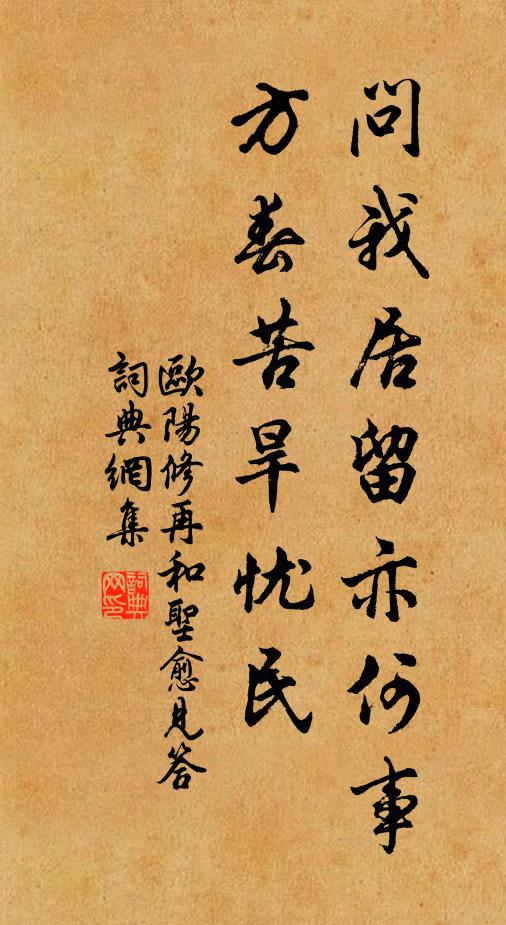 問我居留亦何事
方春苦旱忧民
歐陽修再和聖愈見答
詞典網集
詞典
网印